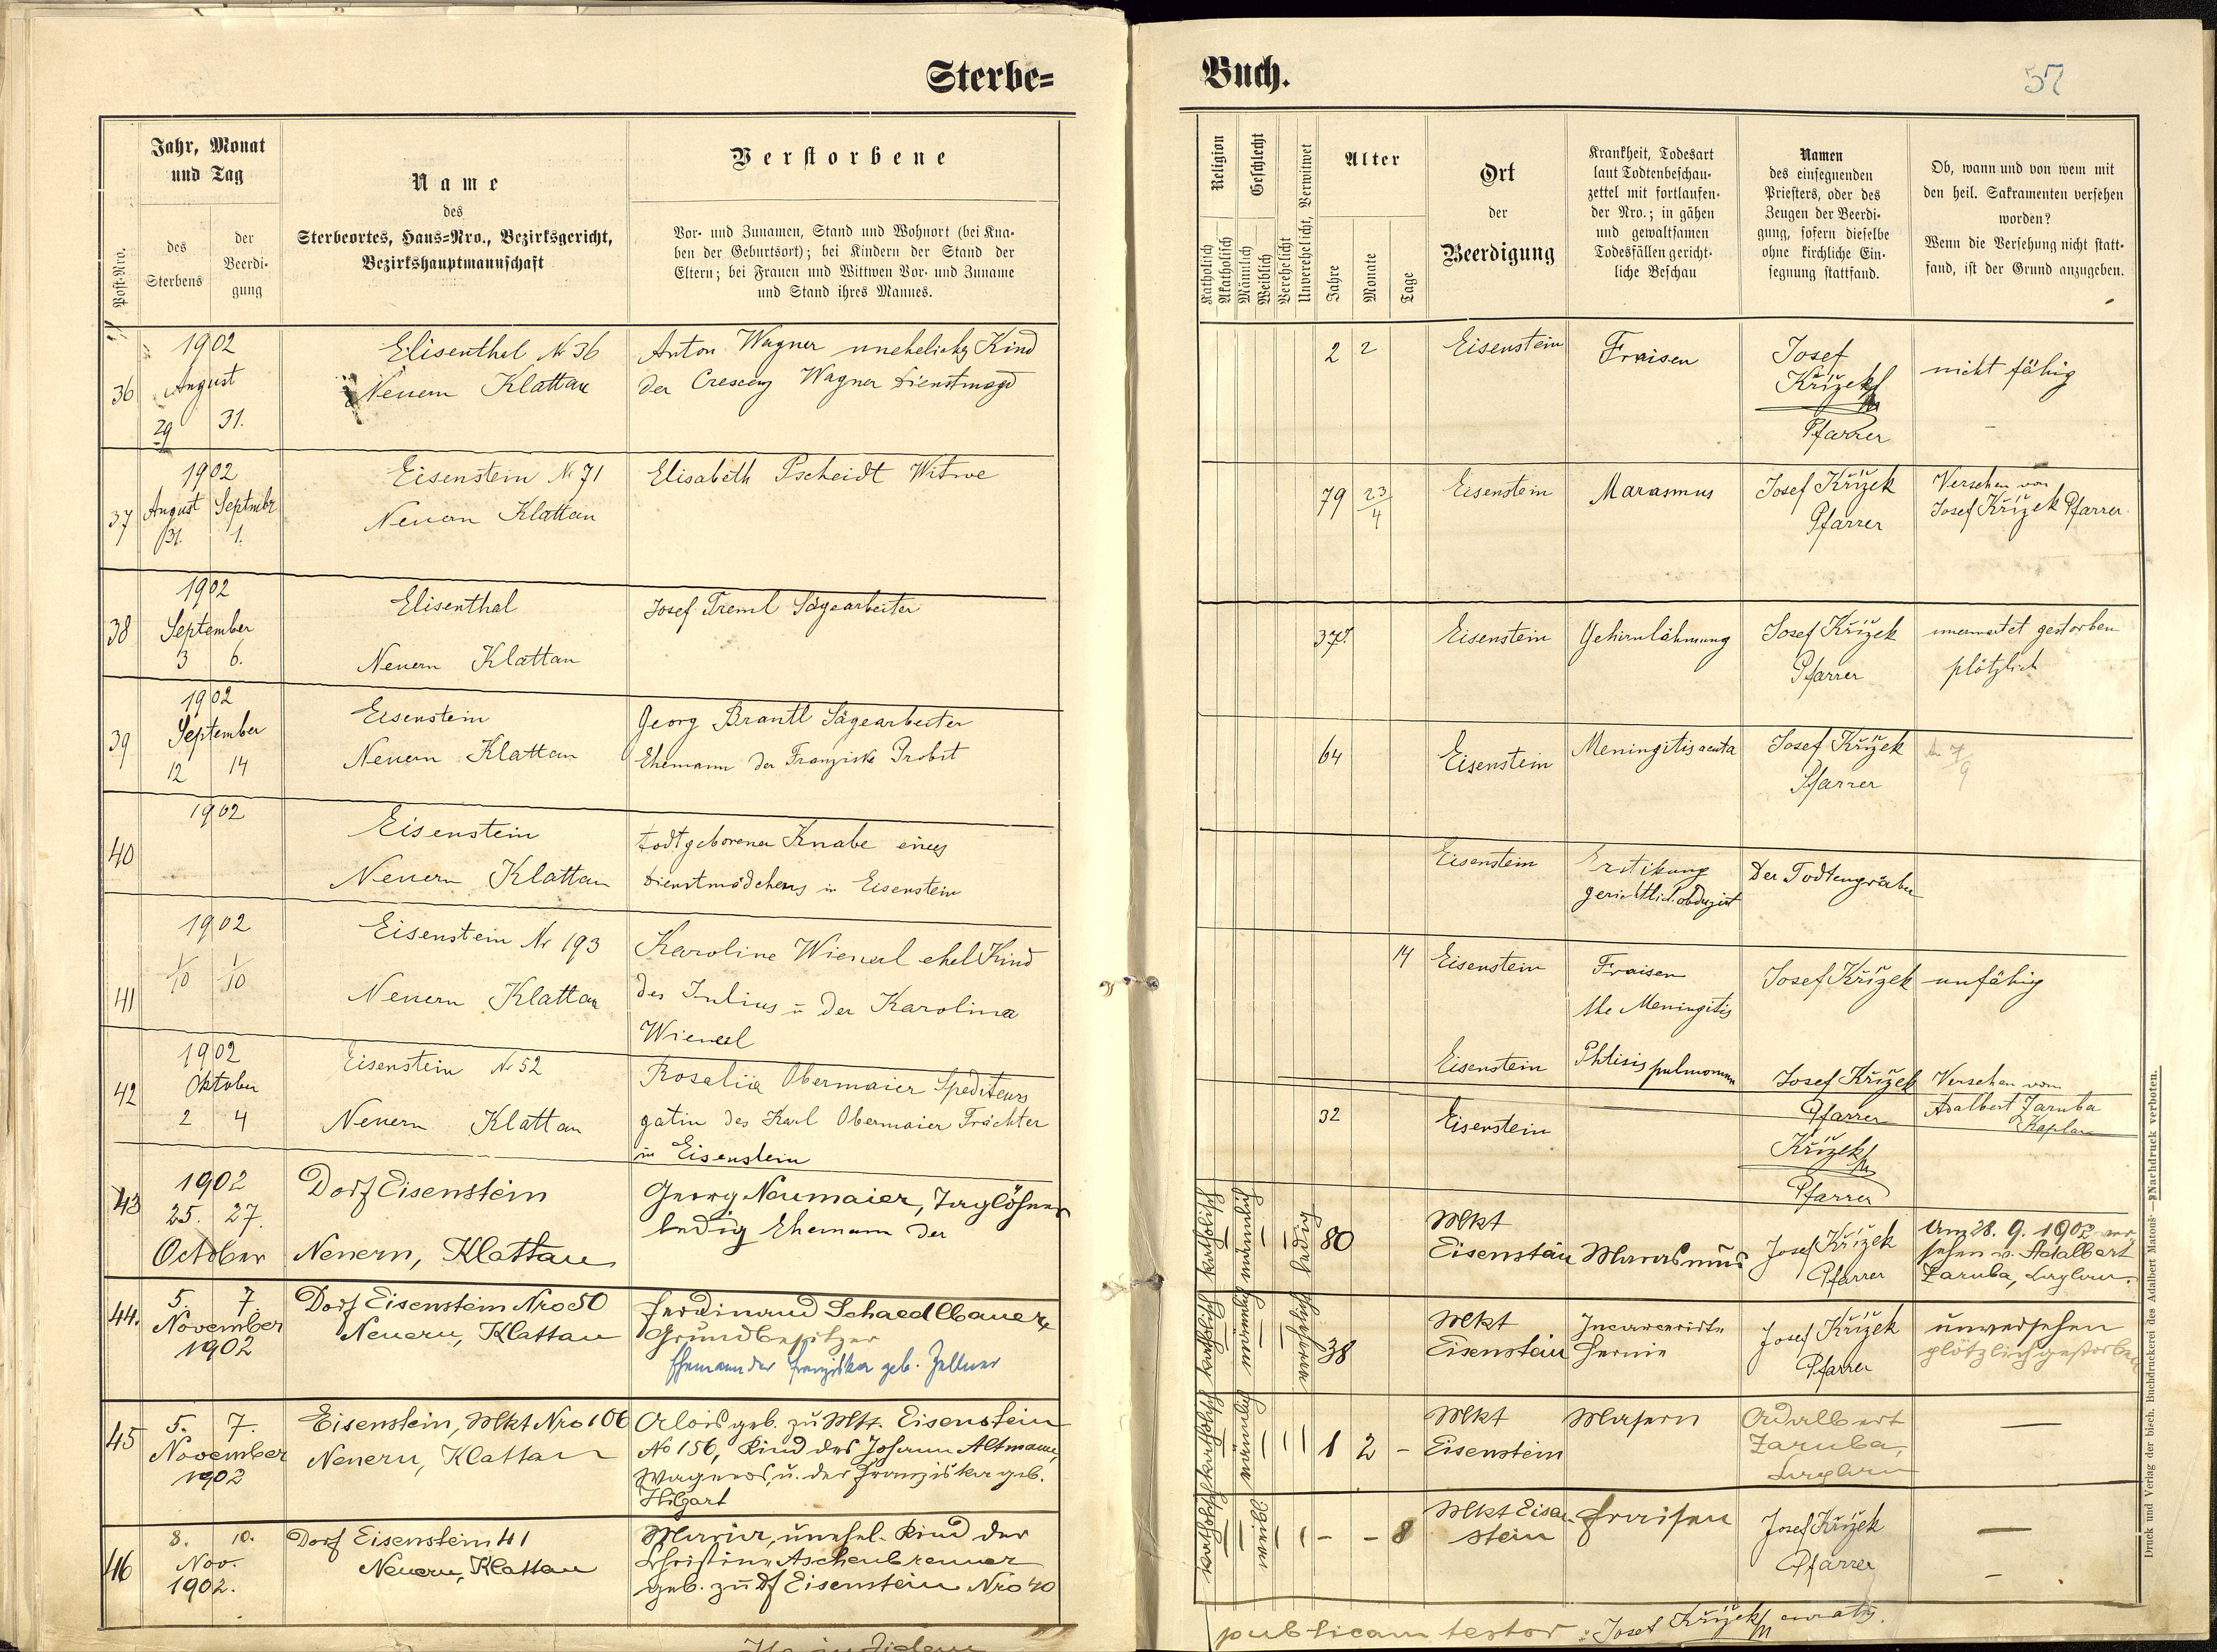 Sterbe=
Jahr, Monat
und Tag
Post-Nro.
des
Sterbens
der
Beerdi-
gung
Name
des
Sterbeortes, Haus=Nro., Bezirksgericht,
Bezirkshauptmannschaft
Verstorbene
Vor- und Zunamen, Stand und Wohnort (bei Kna-
ben der Geburtsort); bei Kindern der Stand der
Eltern; bei Frauen und Wittwen Vor- und Zuname
und Stand ihres Mannes.
36
1902
August
29
31.
Elisenthal № 36
Neuern Klattau
Anton Wagner uneheliches Kind
der Crescenz Wagner Dienstmagd
37
1902
August Septmbr
31. 1.
Eisenstein № 71
Neuern Klattau
Elisabeth Pscheidt Witwe
38
1902
September
3 6.
Elisenthal
Neuern Klattau
Josef Treml Sägearbeiter
39
1902
September
12 14
Eisenstein
Neuern Klattau
Georg Brantl Sägearbeiter
Ehemann der Franziska Probst
40
1902
Eisenstein
Neuern Klattau
todtgeborener Knabe eines
Dienstmädchens in Eisenstein
41
1902
1/10 1/10
Eisenstein Nr 193
Neuern Klattau
Karoline Wienerl ehel Kind
des Julius u der Karolina
Wienerl
42
1902
Oktober
2 4
Eisenstein № 52
Neuern Klattau
Rosalia Obermaier Spediteurs
gatin des Karl Obermaier Frächter
in Eisenstein
43
1902
25. 27.
October
Dorf Eisenstein
Neuern, Klattau
Georg Neumaier, Taglöhner
ledig Ehemann der
44.
5. 7.
November
1902
Dorf Eisenstein Nro 50
Neuern, Klattau
Ferdinand Schaedlbauer
Grundbesitzer
Ehemann der Franziska geb. Zellner
45
5. 7.
November
1902
Eisenstein, Mkt Nro 106
Neuern, Klattau
Alois geb. zu Mkt. Eisenstein
No 156, Kind des Johann Altmann,
Wagners, u. der Franziska geb.
Hilgart
46
8. 10.
Nov.
1902.
Dorf Eisenstein 41
Neuern, Klattau
Maria, unehel. Kind der
Christine Aschenbrenner
geb. zu Df Eisenstein Nro 40
Buch.
57
Religion
Katholisch
Akatholisch
Geschlecht
Männlich
Weiblich
Verehelicht
Unverehelicht, Verwitwet
Alter
Jahre
Monate
Tage
Ort
der
Beerdigung
Krankheit, Todesart
laut Todtenbeschau-
zettel mit fortlaufen-
der Nro.; in gähen
und gewaltsamen
Todesfällen gericht-
liche Beschau
Namen
des einsegnenden
Priesters, oder des
Zeugen der Beerdi-
gung, sofern dieselbe
ohne kirchliche Ein-
segnung stattfand.
Ob, wann und von wem mit
den heil. Sakramenten versehen
worden?
Wenn die Versehung nicht statt-
fand, ist der Grund anzugeben.
2 2
Eisenstein
Fraisen
Josef
Křížek
Pfarrer
nicht fähig
79 23/4
Eisenstein
Marasmus
Josef Křížek
Pfarrer
Versehen von
Josef Křížek Pfarrer
37
Eisenstein
Gehirnlähmung
Josef Křížek
Pfarrer
unerwartet gestorben
plötzlich
64
Eisenstein
Meningitis acuta
Josef Křížek
Pfarrer
7/9
Eisenstein
Erstikung
gerichtlich obduzirt
Der Todtengräber
14
Eisenstein
Fraisen
Meningitis
Josef Křížek
unfähig
Eisenstein
Phtisis pulmonum
Josef Křížek
Pfarrer
Versehen vom
Adalbert Zaruba
Kaplan
32
Eisenstein
Křížek
Pfarrer
katholisch
männlich
ledig
80
Mkt
Eisenstein
Marasmus
Josef Křížek
Pfarrer
Am 28. 9. 1902 ver
sehen v. Adalbert
Zaruba, Kaplan.
katholisch
männlich
verehelicht
38
Mkt
Eisenstein
Incarcerirte
Hernie
Josef Křížek
Pfarrer
unversehen
plötzlich gestorben
katholisch
männlich
1 2 -
Mkt
Eisenstein
Masern
Adalbert
Zaruba,
Kaplan
—
katholisch
weiblich
- - 8
Mkt Eisen
stein
Fraisen
Josef Křížek
Pfarrer
—
publicam testor
Josef Křížek
Druck und Verlag der bisch. Buchdruckerei des Adalbert Matouš — Nachdruck verboten.